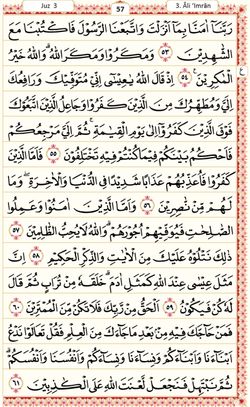 Juz 3
57
3. Āli 'Imrān
رَبَّنَآ اٰمَنَّا بِمَآ اَنْزَلْتَ وَاتَّبَعْنَا الرَّسُوْلَ فَاكْتُبْنَا مَعَ
الشّٰهِدِيْنَ ﴿٥٣﴾ وَمَكَرُوْا وَمَكَرَ اللّٰهُ ؕ وَاللّٰهُ خَيْرُ
الْمٰكِرِيْنَ ﴿٥٤﴾ اِذْ قَالَ اللّٰهُ يٰعِيْسٰٓى اِنِّىْ مُتَوَفِّيْكَ وَرَافِعُكَ
اِلَىَّ وَمُطَهِّرُكَ مِنَ الَّذِيْنَ كَفَرُوْا وَجَاعِلُ الَّذِيْنَ اتَّبَعُوْكَ
فَوْقَ الَّذِيْنَ كَفَرُوْٓا اِلٰى يَوْمِ الْقِيٰمَةِ ۚ ثُمَّ اِلَىَّ مَرْجِعُكُمْ
فَاَحْكُمُ بَيْنَكُمْ فِيْمَا كُنْتُمْ فِيْهِ تَخْتَلِفُوْنَ ﴿٥٥﴾ فَاَمَّا الَّذِيْنَ
كَفَرُوْا فَاُعَذِّبُهُمْ عَذَابًا شَدِيْدًا فِى الدُّنْيَا وَالْاٰخِرَةِ ؗ وَمَا
لَهُمْ مِّنْ نّٰصِرِيْنَ ﴿٥٦﴾ وَاَمَّا الَّذِيْنَ اٰمَنُوْا وَعَمِلُوا
الصّٰلِحٰتِ فَيُوَفِّيْهِمْ اُجُوْرَهُمْ ؕ وَاللّٰهُ لَا يُحِبُّ الظّٰلِمِيْنَ ﴿٥٧﴾
ذٰلِكَ نَتْلُوْهُ عَلَيْكَ مِنَ الْاٰيٰتِ وَالذِّكْرِ الْحَكِيْمِ ﴿٥٨﴾ اِنَّ
مَثَلَ عِيْسٰى عِنْدَ اللّٰهِ كَمَثَلِ اٰدَمَ ؕ خَلَقَهٗ مِنْ تُرَابٍ ثُمَّ قَالَ
لَهٗ كُنْ فَيَكُوْنُ ﴿٥٩﴾ اَلْحَقُّ مِنْ رَّبِّكَ فَلَا تَكُنْ مِّنَ الْمُمْتَرِيْنَ ﴿٦٠﴾
فَمَنْ حَآجَّكَ فِيْهِ مِنْۢ بَعْدِ مَا جَآءَكَ مِنَ الْعِلْمِ فَقُلْ تَعَالَوْا نَدْعُ
اَبْنَآءَنَا وَاَبْنَآءَكُمْ وَنِسَآءَنَا وَنِسَآءَكُمْ وَاَنْفُسَنَا وَاَنْفُسَكُمْ ۟
ثُمَّ نَبْتَهِلْ فَنَجْعَلْ لَّعْنَتَ اللّٰهِ عَلَى الْكٰذِبِيْنَ ﴿٦١﴾